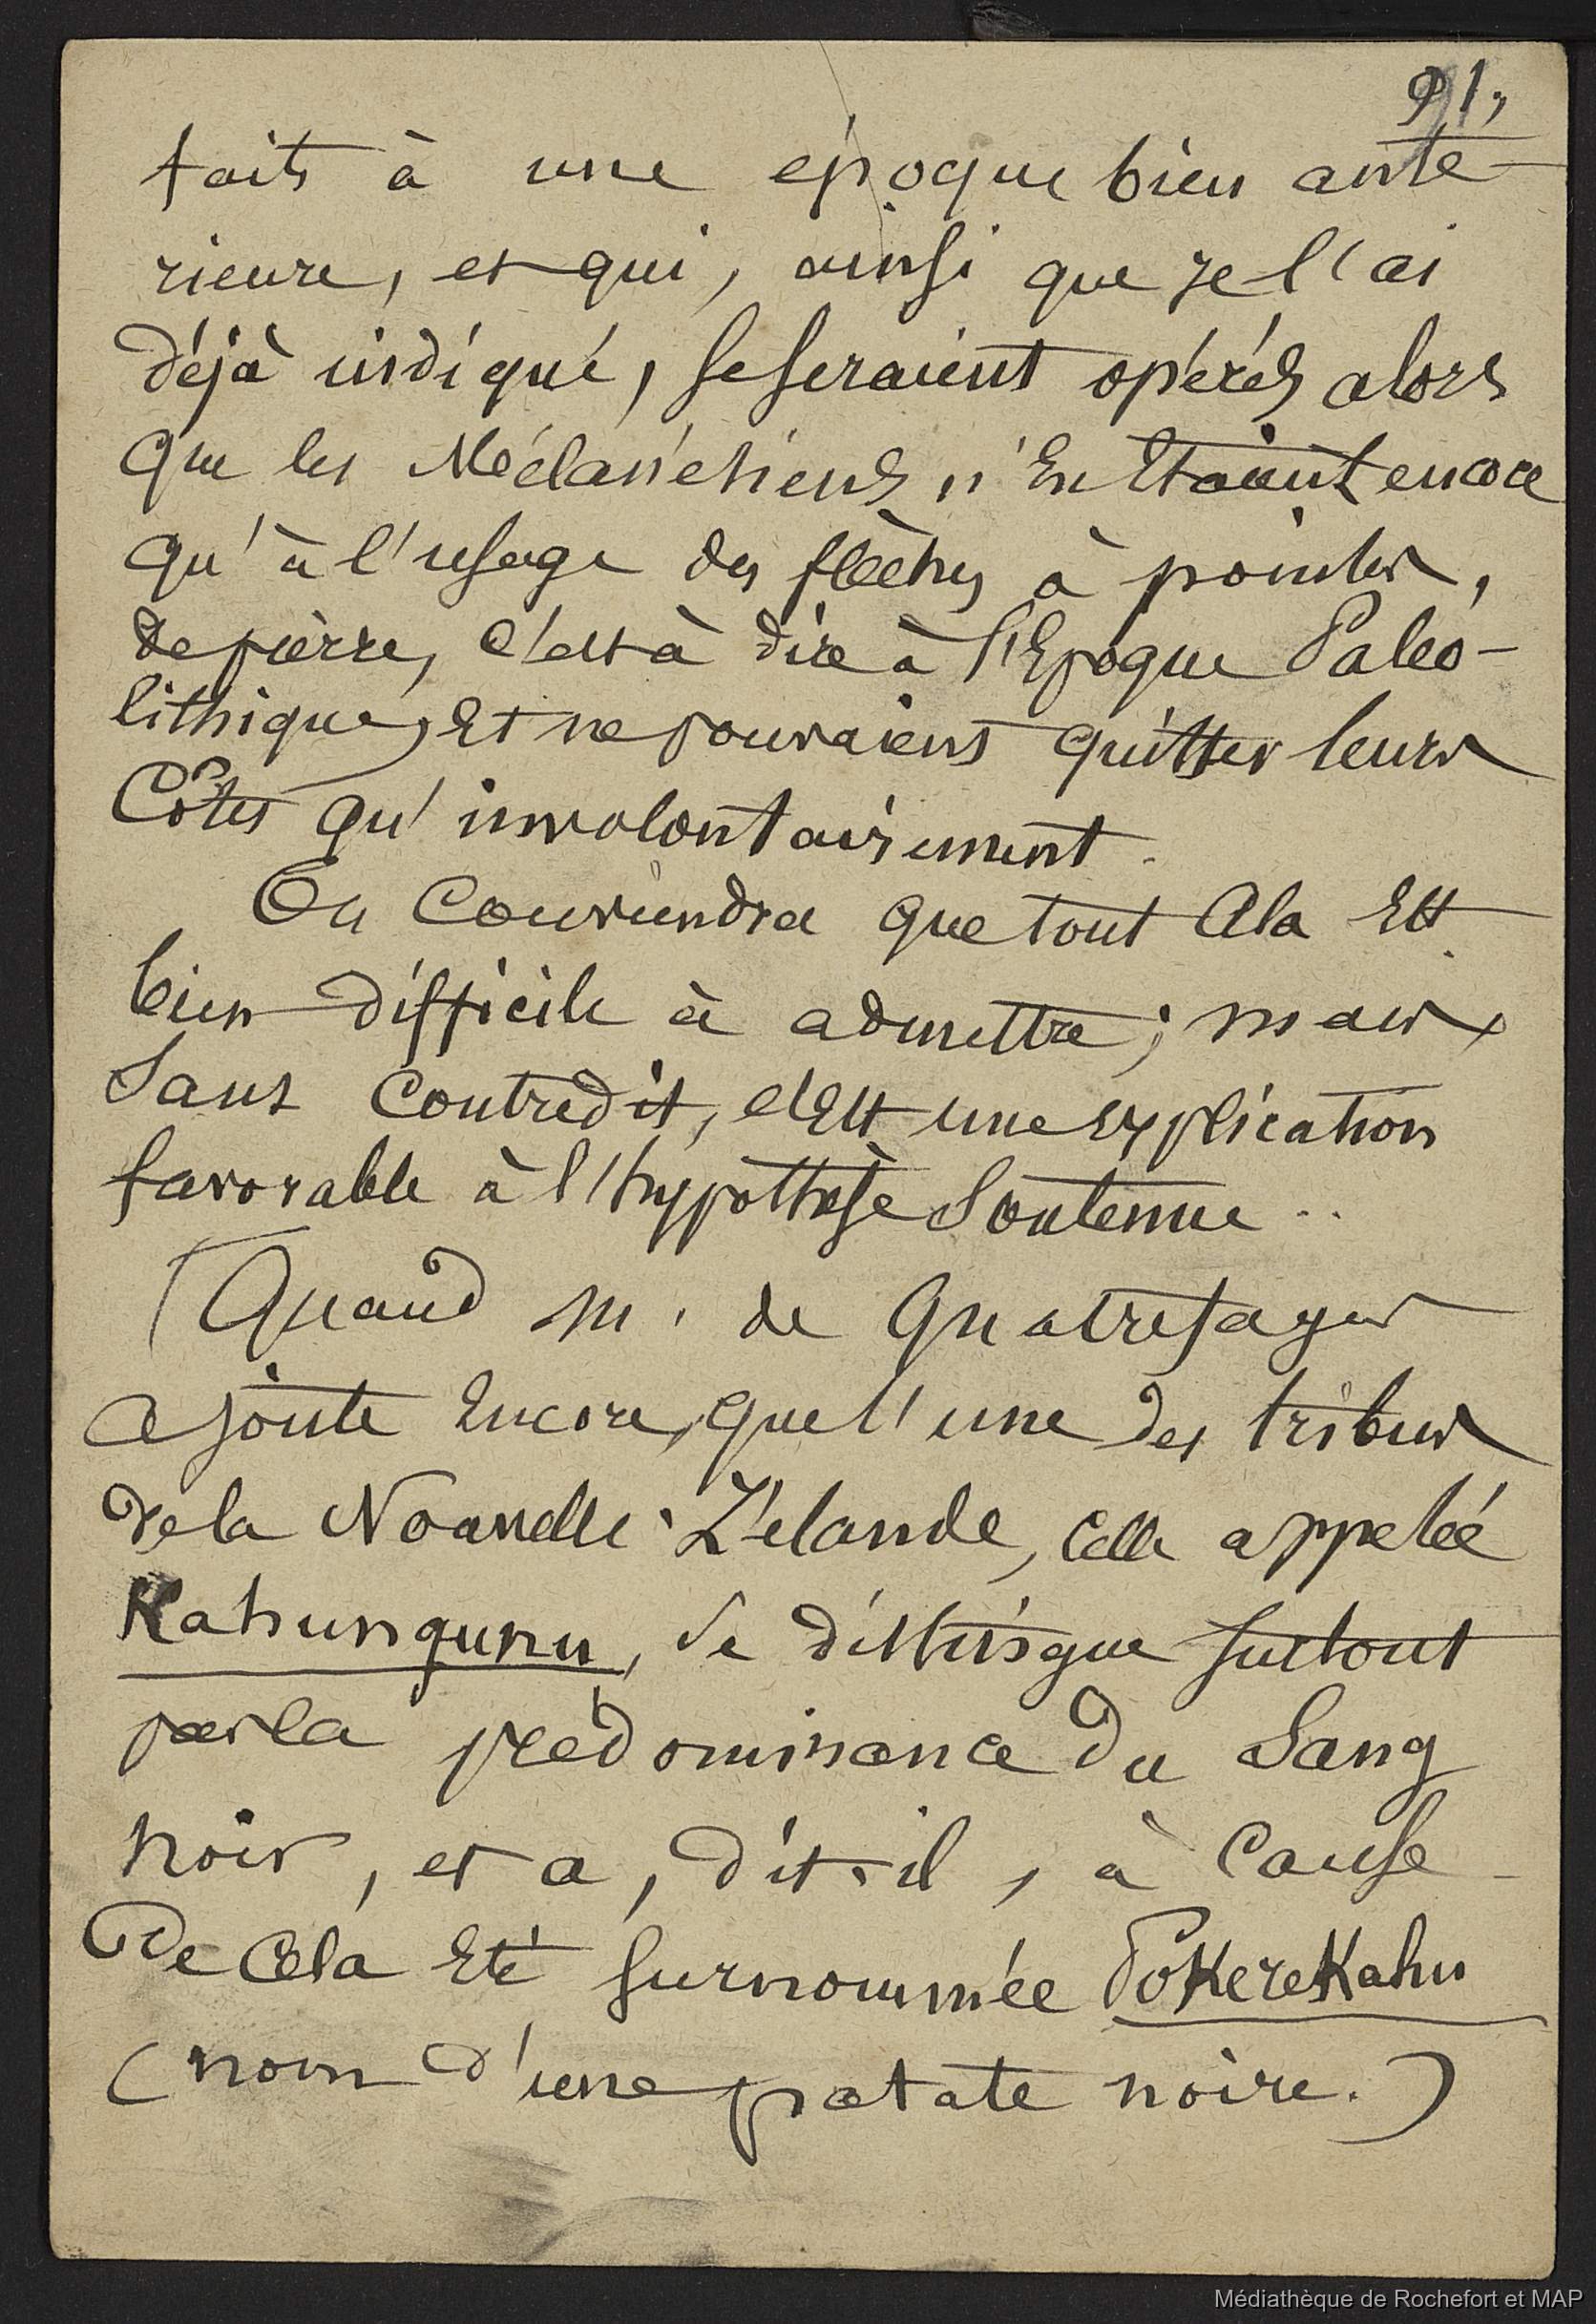 91,
faits à une époque bien anté-
rieure, et qui, ainsi que je l'ai
déjà indiqué, se seraient opérés alors
que les Mélanésiens n'en étaient encore
qu'à l'usage des flèches à pointes,
de pierre, c'est à dire à l'Epoque Paléo-
lithique, et ne pouvaient quitter leurs
Côtes qu'involontairement.
On Conviendra que tout Cela est
bien difficile à admettre; mais
Sans Contredit, c'est une explication
favorable à l'hypothèse Soutenue..
(Quand M. de Quatrefages
ajoute encore, que l'une des tribus
de la Nouvelle-Zélande, celle appelée
Kahungunu, se distingue surtout
par la prédominance du Sang
noir, et a, dit-il, à Cause
De Cela été surnommée PoKereKahu
(nom d'une patate noire.)
Médiathèque de Rochefort et MAP